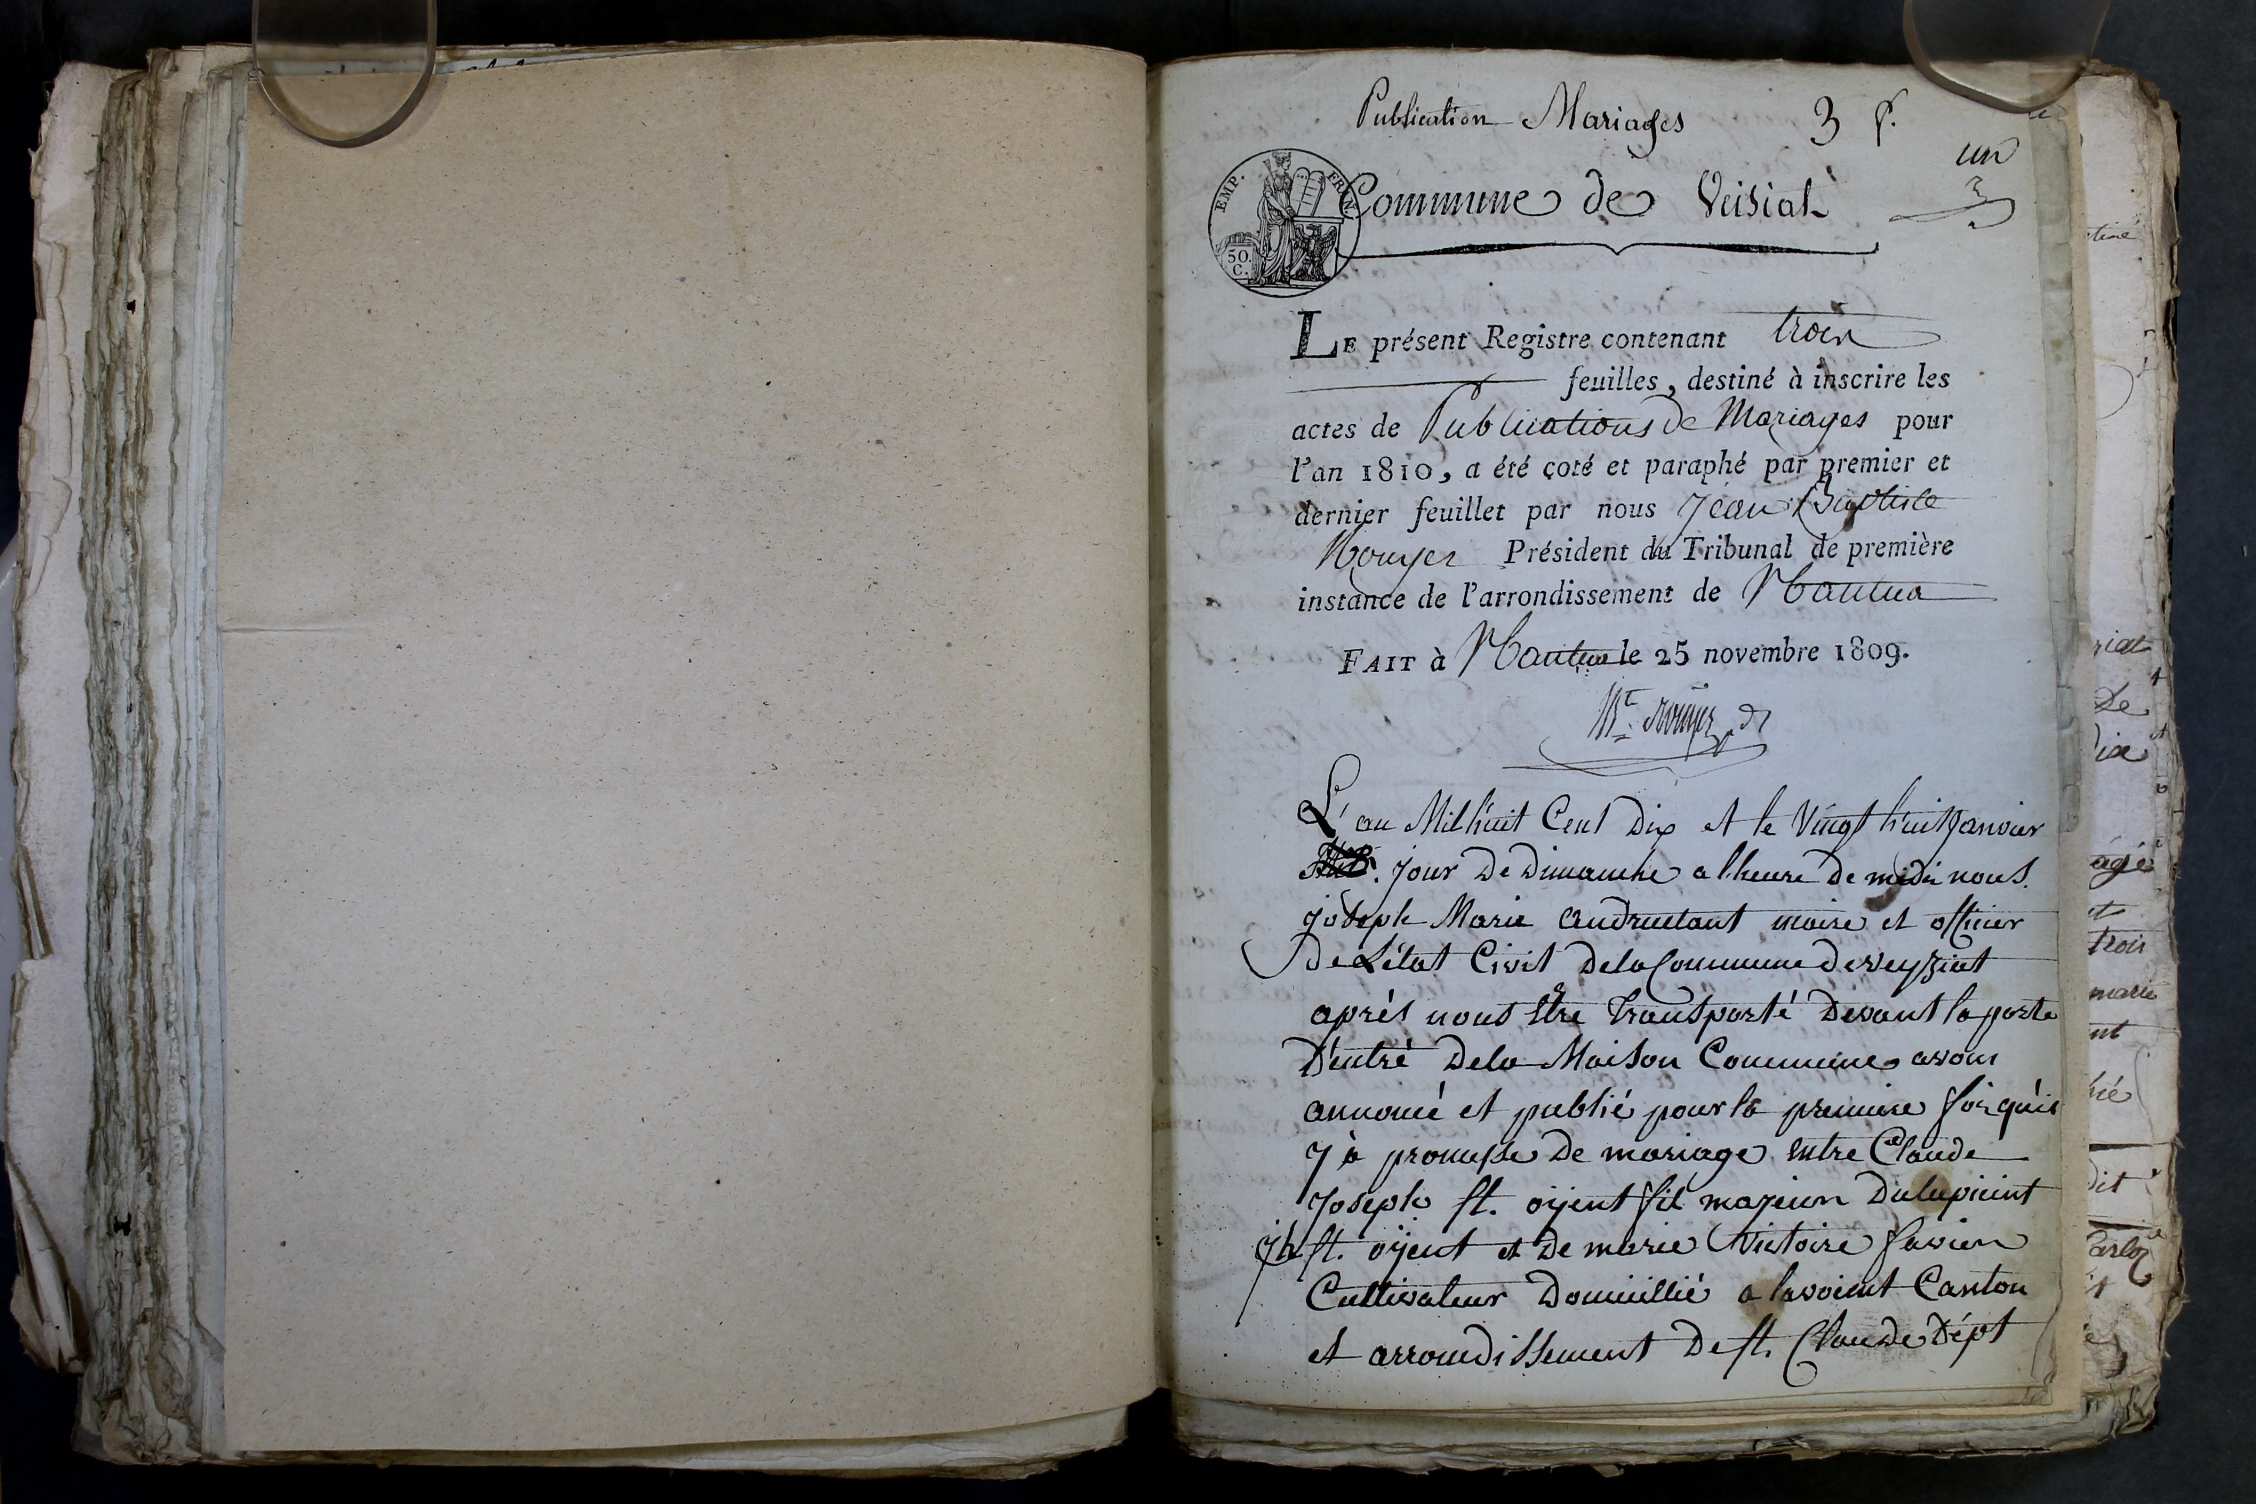 Publication Mariages 3 f.
un
3
EMP. FRAN.
50.
C.
Commune de Veisiat
LE présent Registre contenant trois
feuilles, destiné à inscrire les
actes de Publications de Mariages pour
l'an 1810, a été coté et paraphé par premier et
dernier feuillet par nous Jean Baptiste
Rouyer Président du Tribunal de première
instance de l'arrondissement de Nantua
FAIT à Nantua le 25 novembre 1809.
L'an Mil huit Cent Dix et le Vingt huit Janvier
Jour De Dimanche a lheure De midi nous
joseph Marie andruetant maire et officier
De L'état Civil Dela Commune deveyziat
aprés nous Etre Transporté Devant la porte
D'entré Dela Maison Commune avons
annoncé et publié pour la premiere fois qu'il
y à promesse De mariage entre Claude
Joseph st. oyent fil majeur Dulupicint
jh st. oyent et De marie Victoire favier
Cultivateur Domicillié a lavoient Canton
et arrondissement De st. Claude Dépt